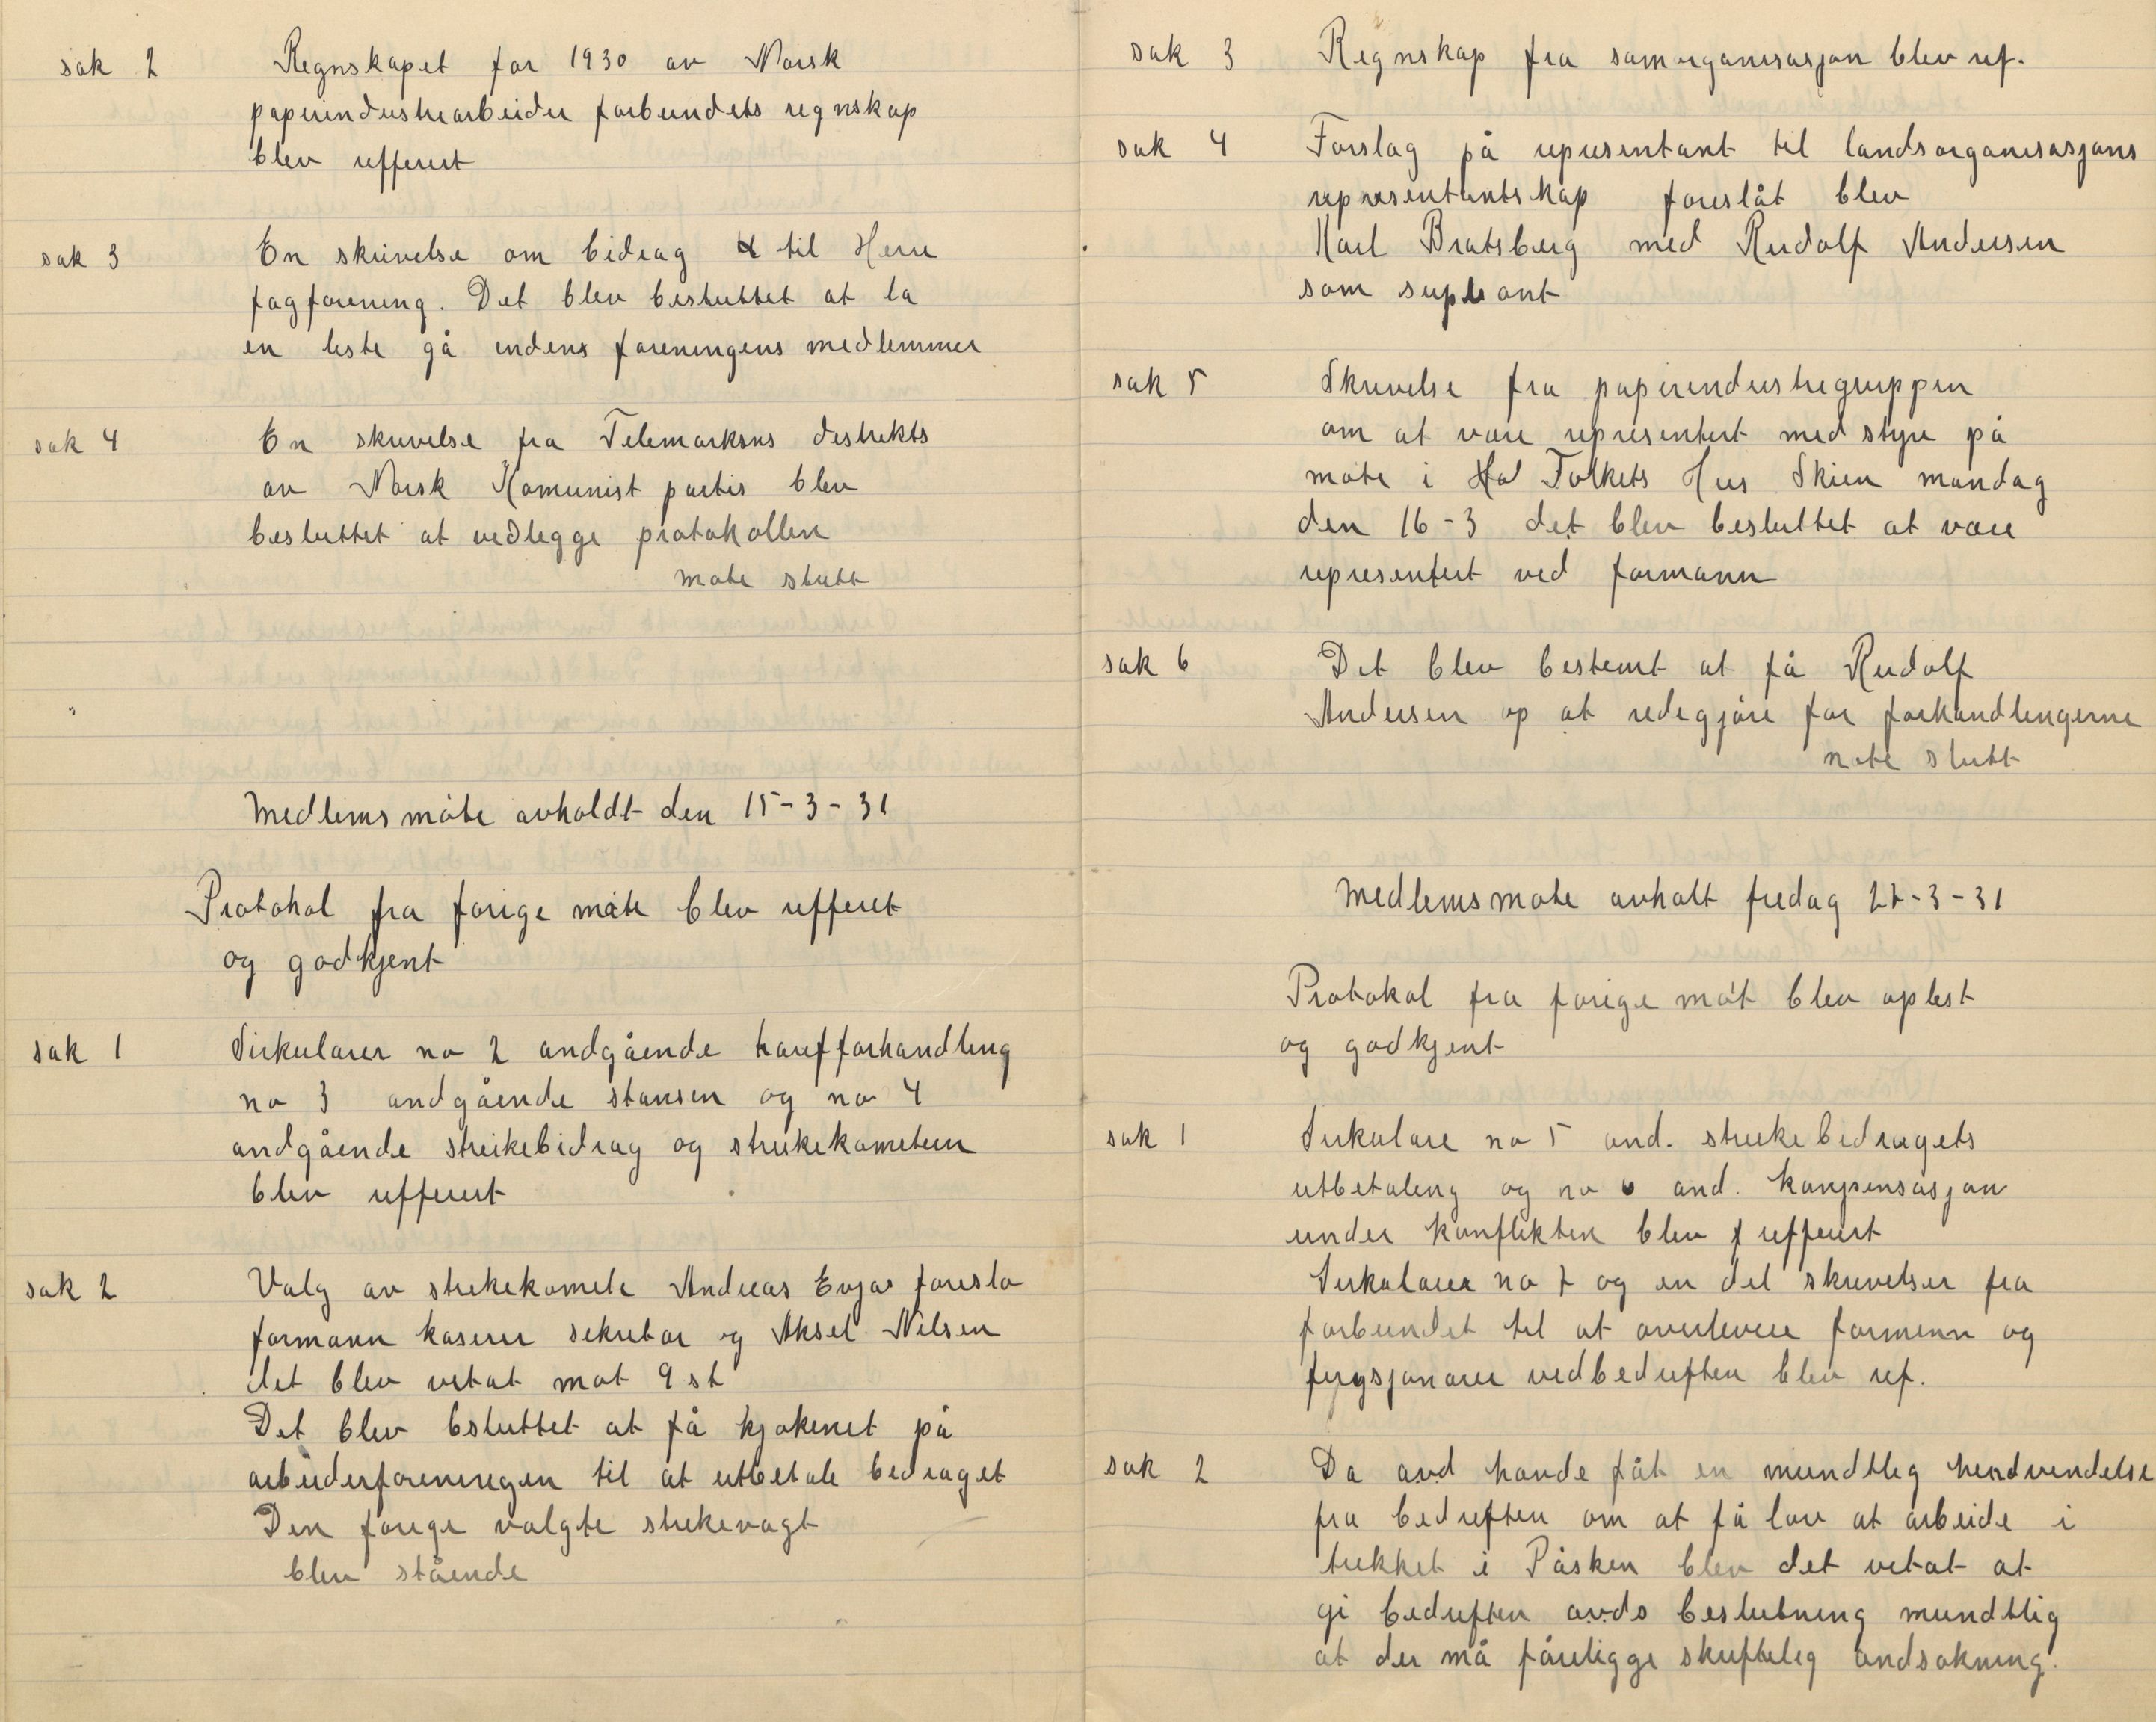 sak 2 Regnskapet for 1930 av Norsk
papirindustriarbeider forbundets regnskap
blev refferert
sak 3 En skrivelse om bidrag til Herre
fagforening. Det blev besluttet at la
en liste gå indens foreningens medlemmer
sak 4 En skrivelse fra Telemarksens distrikts
av Norsk Komunist partis blev
besluttet at vedlegge protokollen
møte slutt
Medlemsmøte avholdt den 15-3-31
Protokol fra forige møte blev refferet
og godkjent
sak 1 Sirkulærer no 2 andgående tarifforhandling
no 3 andgående stansen og no 4
andgående streikebidrag og streikekomiteen
blev refferert
sak 2 Valg av streikekomite Andreas Evja foreslo
formann kaserer sekretær og Aksel Nilsen
det blev vetat mot 9 st
Det blev bsluttet at få kjøkenet på
arbeiderforeningen til at utbetale bidraget
Den forige valgte streikevagt
blev stående
sak 3 Regnskap fra samorganisasjon blev ref.
sak 4 Forslag på representant til landsorganisasjons
representantskap foreslåt blev
Karl Bratsberg med Rudolf Andersen
som supleant
sak 5 Skrivelse fra papirindustrigruppen
om at være representert med styre på
møte i Folkets Hus Skien mandag
den 16-3 det blev besluttet at være
representert ved formann
sak 6 Det blev bestemt at få Rudolf
Andersen op at redegjøre for forhandlingerne
møte slutt
Medlemsmøte avholt fredag 27-3-31
Protokol fra forige møt blev oplest
og godkjent
sak 1 Sirkulære no 5 and. streikebidragets
utbetaling og no 6 and. kompensasjon
under konflikten blev refferert
Sirkulærer no 7 og en del skrivelser fra
forbundet til at overlevere formenn og
fungsjonærer ved bedriften blev ref.
sak 2 Da avd havde fåt en mundtlig hendvendelse
fra bedriften om at få lov at arbeide i
trekket i Påsken blev det vetat at
gi bedriften avds beslutning mundtlig
at der må foreligge skriftelig andsøkning.